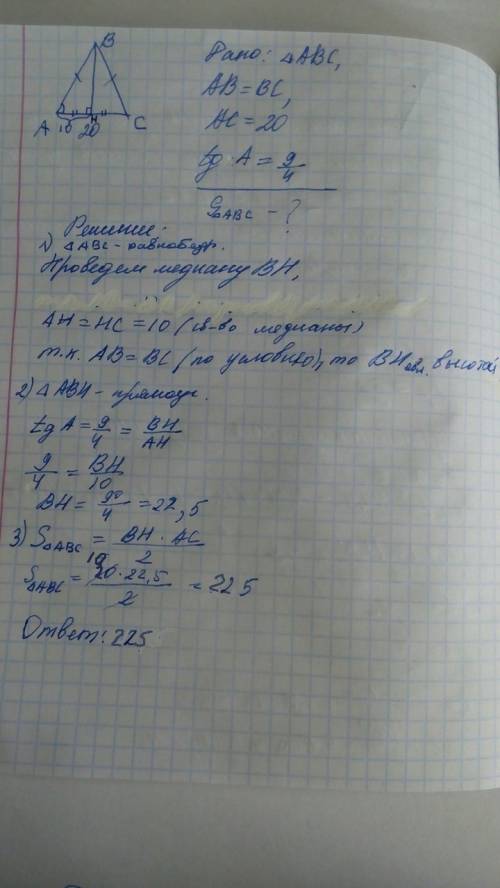 B
A 10 20 H C
Дано: △ABC,
AB = BC,
AC = 20
tg A = 9/4
S△ABC - ?
Решение:
1) △ABC - равнобедр.
Проведем медиану BH,
AH = HC = 10 (св-во медианы)
т.к. AB = BC (по условию), то BH явл. высотой
2) △ABH - прямоуг.
tg A = 9/4 = BH/AH
9/4 = BH/10
BH = 90/4 = 22,5
3) S△ABC = BH · AC/2
S△ABC = 10 20 · 22,5/2 = 225
Ответ: 225